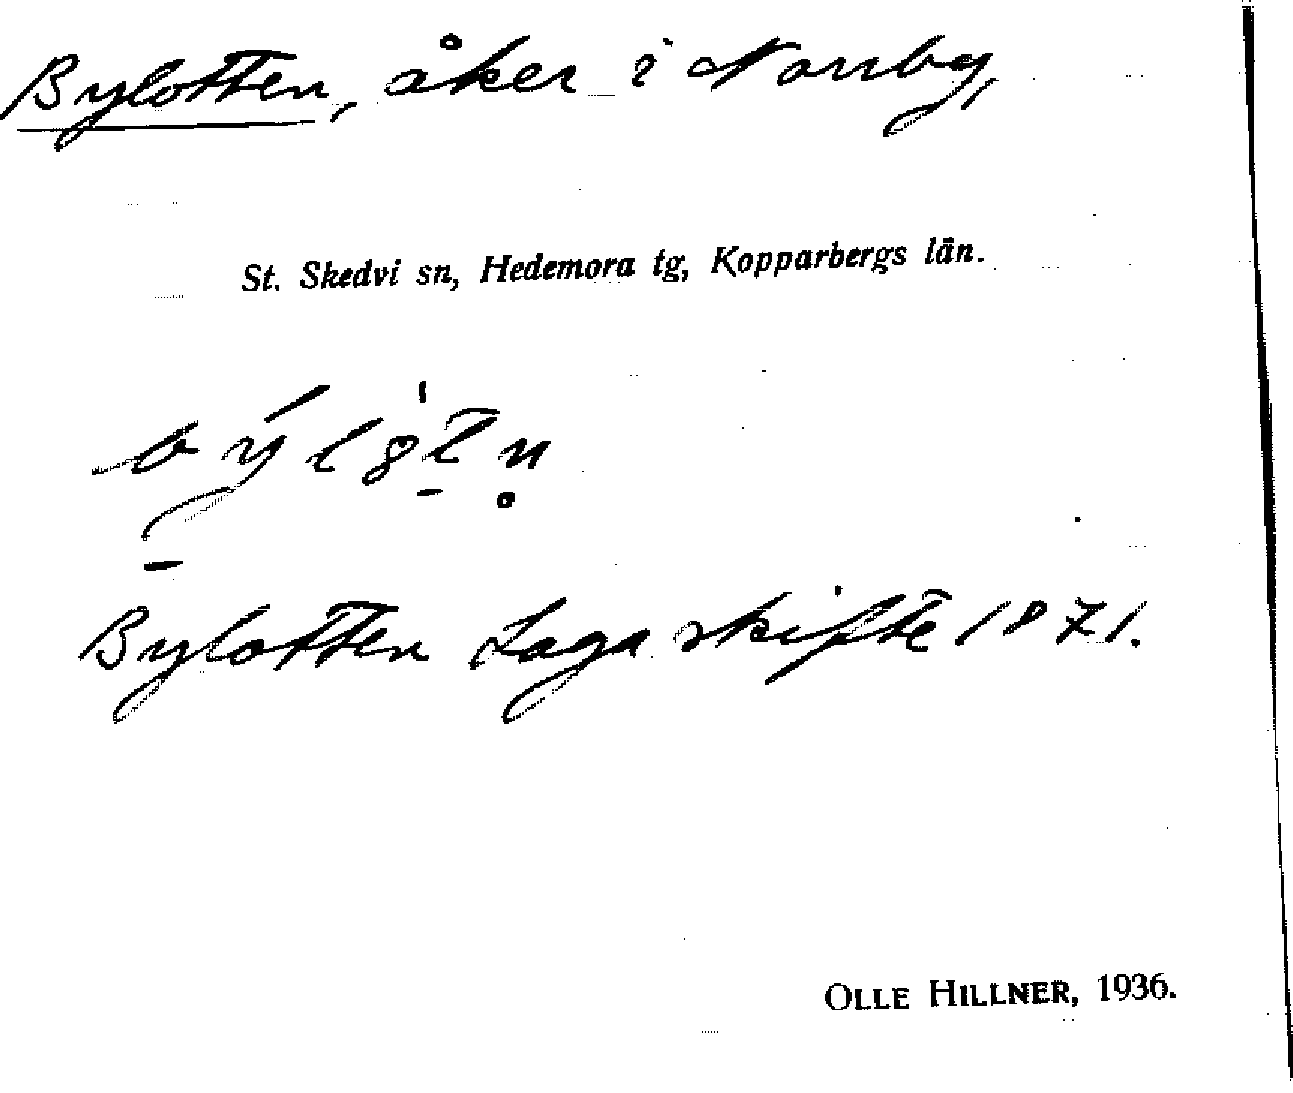 Bylotten, åker i Norrby,
St. Skedvi sn, Hedemora tg, Kopparbergs län.
Bylotten Laga skifte 1871.
OLLE HILLNER, 1936.